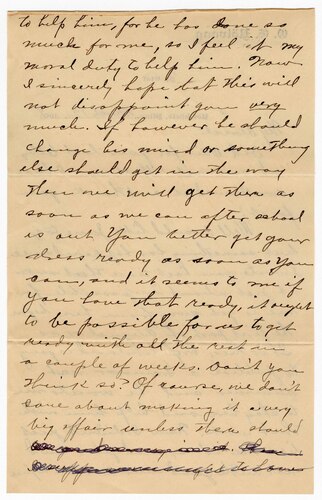 to help him, for he has done so
much for me, so I feel it my
moral duty to help him. Now
I sincerely hope that this will
not disappoint you very
much. If however he should
change his mind or something
else should get in the way
then we will get there as
soon as we can after school
is out. You better get your
dress ready as soon as you
can, and it seems to me if
you have that ready, it ought
to be possible for us to get
ready with all the rest in
a couple of weeks. Don't you
think so? Of course, we don't
care about making it a very
big affair unless there should